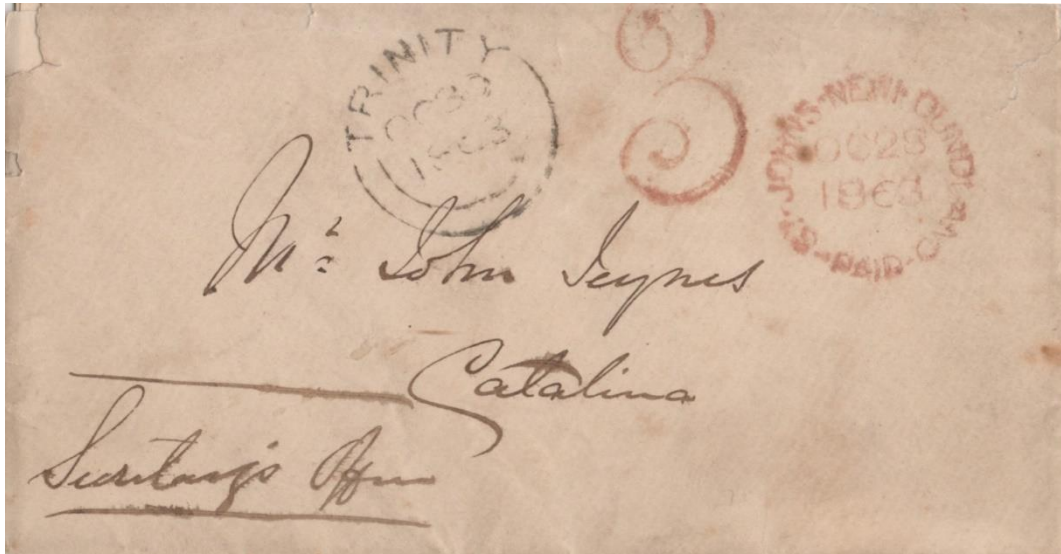 TRINITY
OC 30
1863
3
ST. JOHNS NEWFOUNDLAND
PAID
OC 28
1863
Mr. John Jeynes
Catalina
Secretary's Office